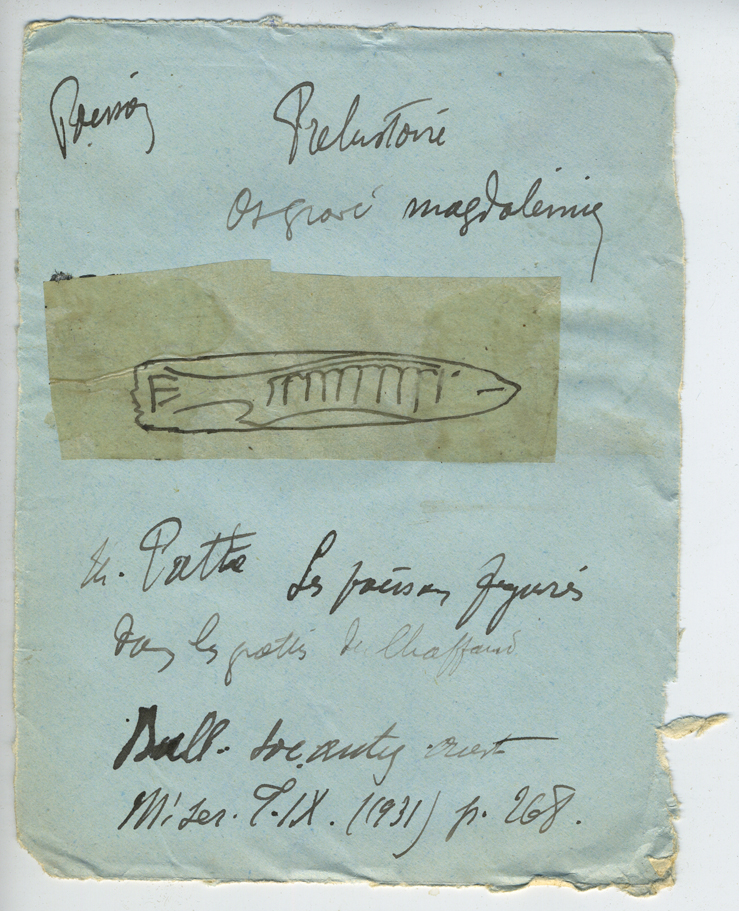 Poisson
Prehistoire
Os gravé magdalénien
Patte Les poissons figurés
dans les grottes du Chaffaud
Bull. soc. antiq. ouest
III ser. T. IX. (1931) p. 268.